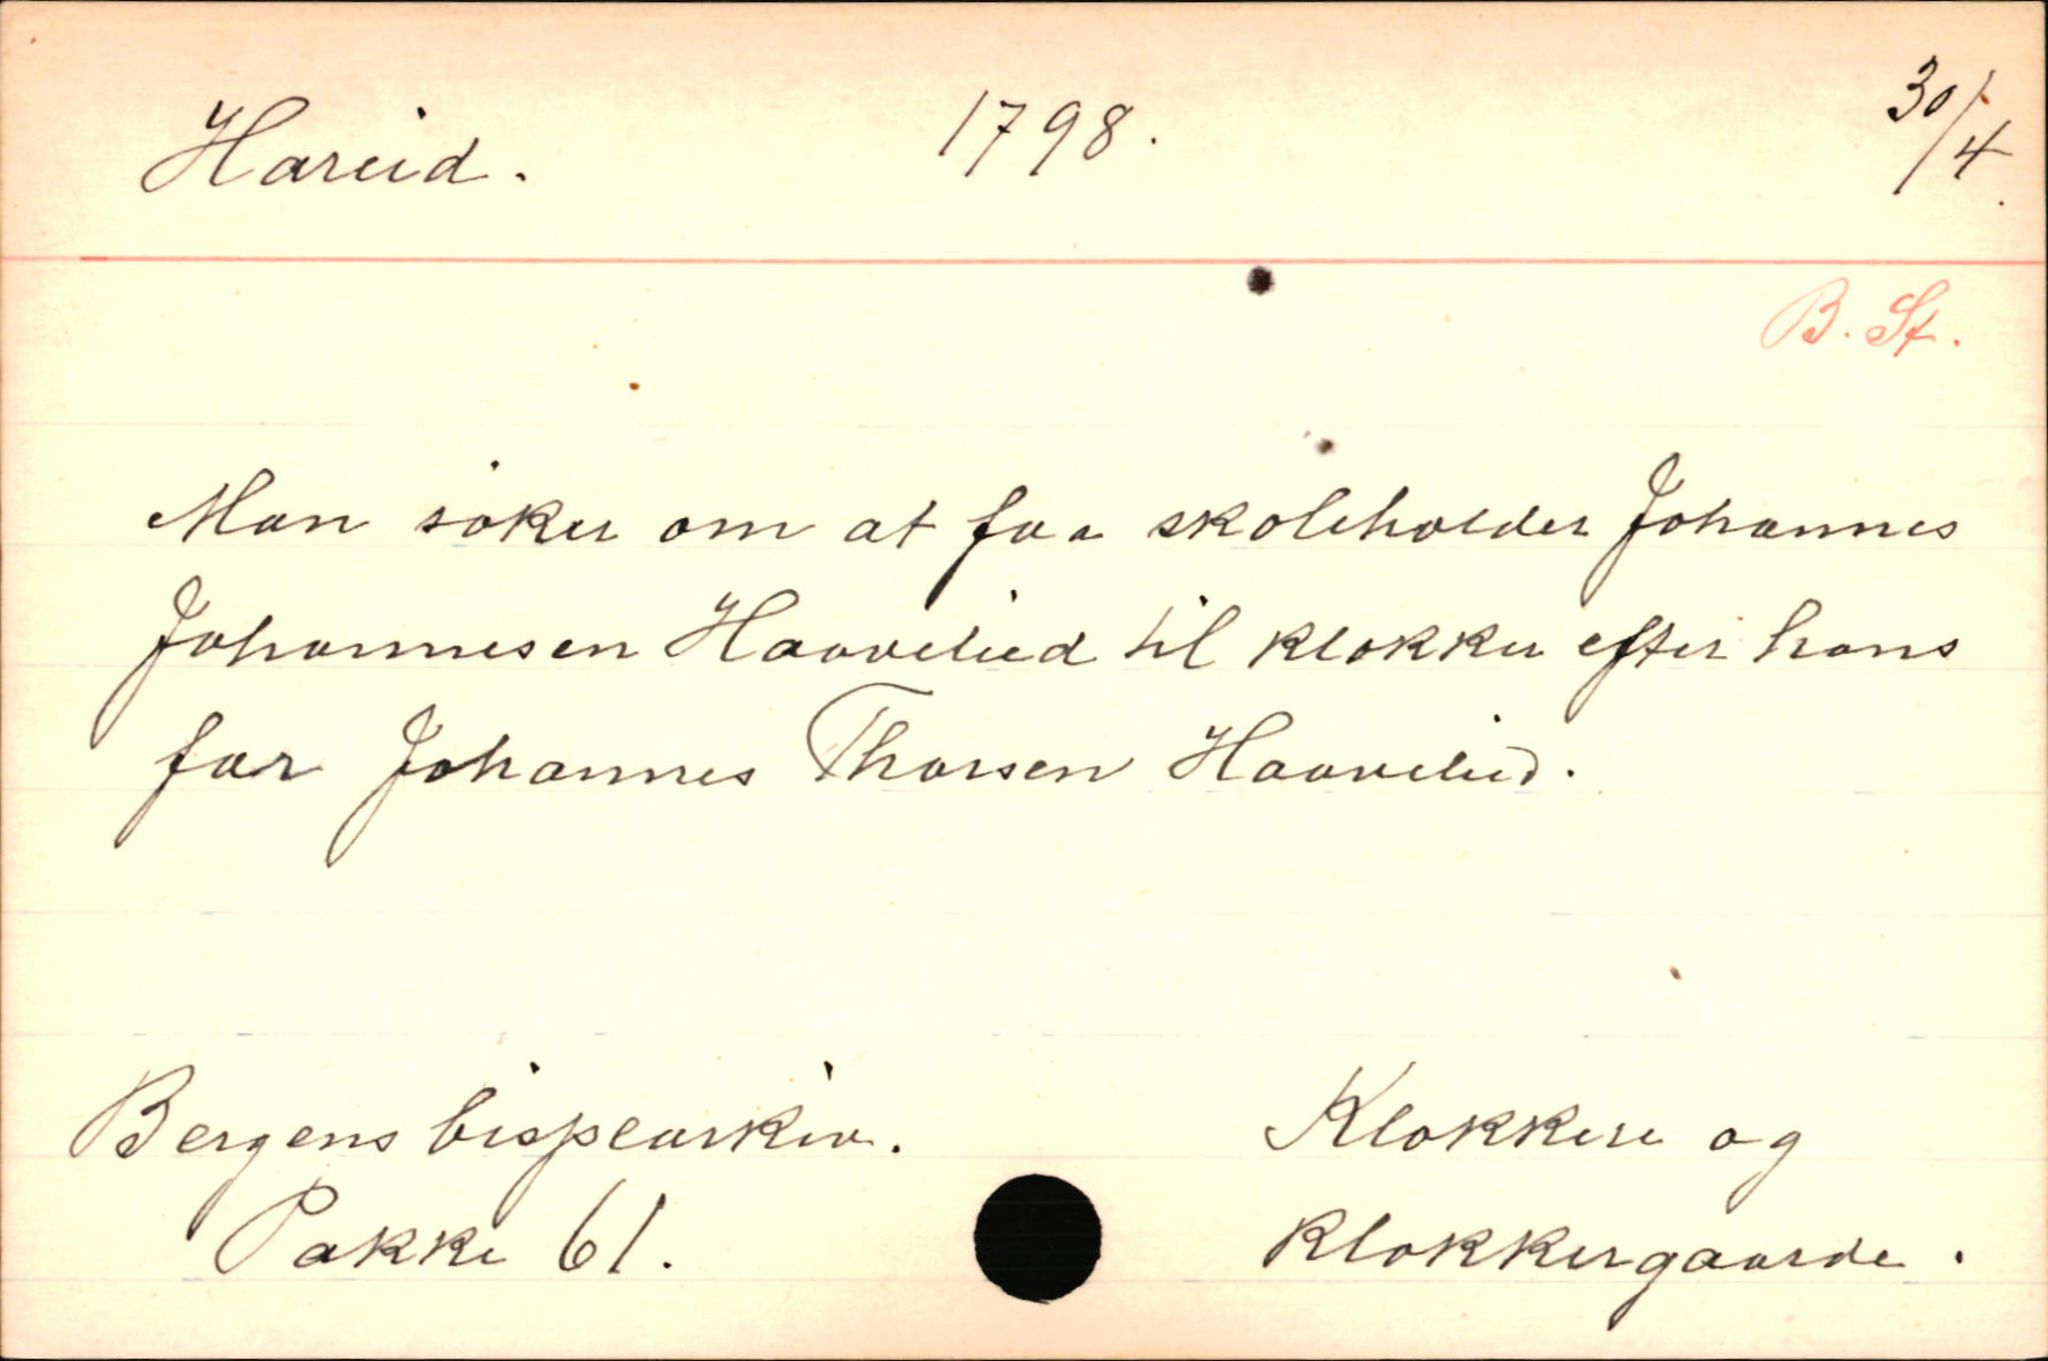 Hareid. 1798. 30/4.
B. St.
Man söker om at faa skoleholder Johannes
Johannesen Haaveleid til klokker efter hans
far Johannes Thorsen Haaveleid.
Bergens bispearkiv. Klokkere og
Pakke 61. Klokkergaarde.